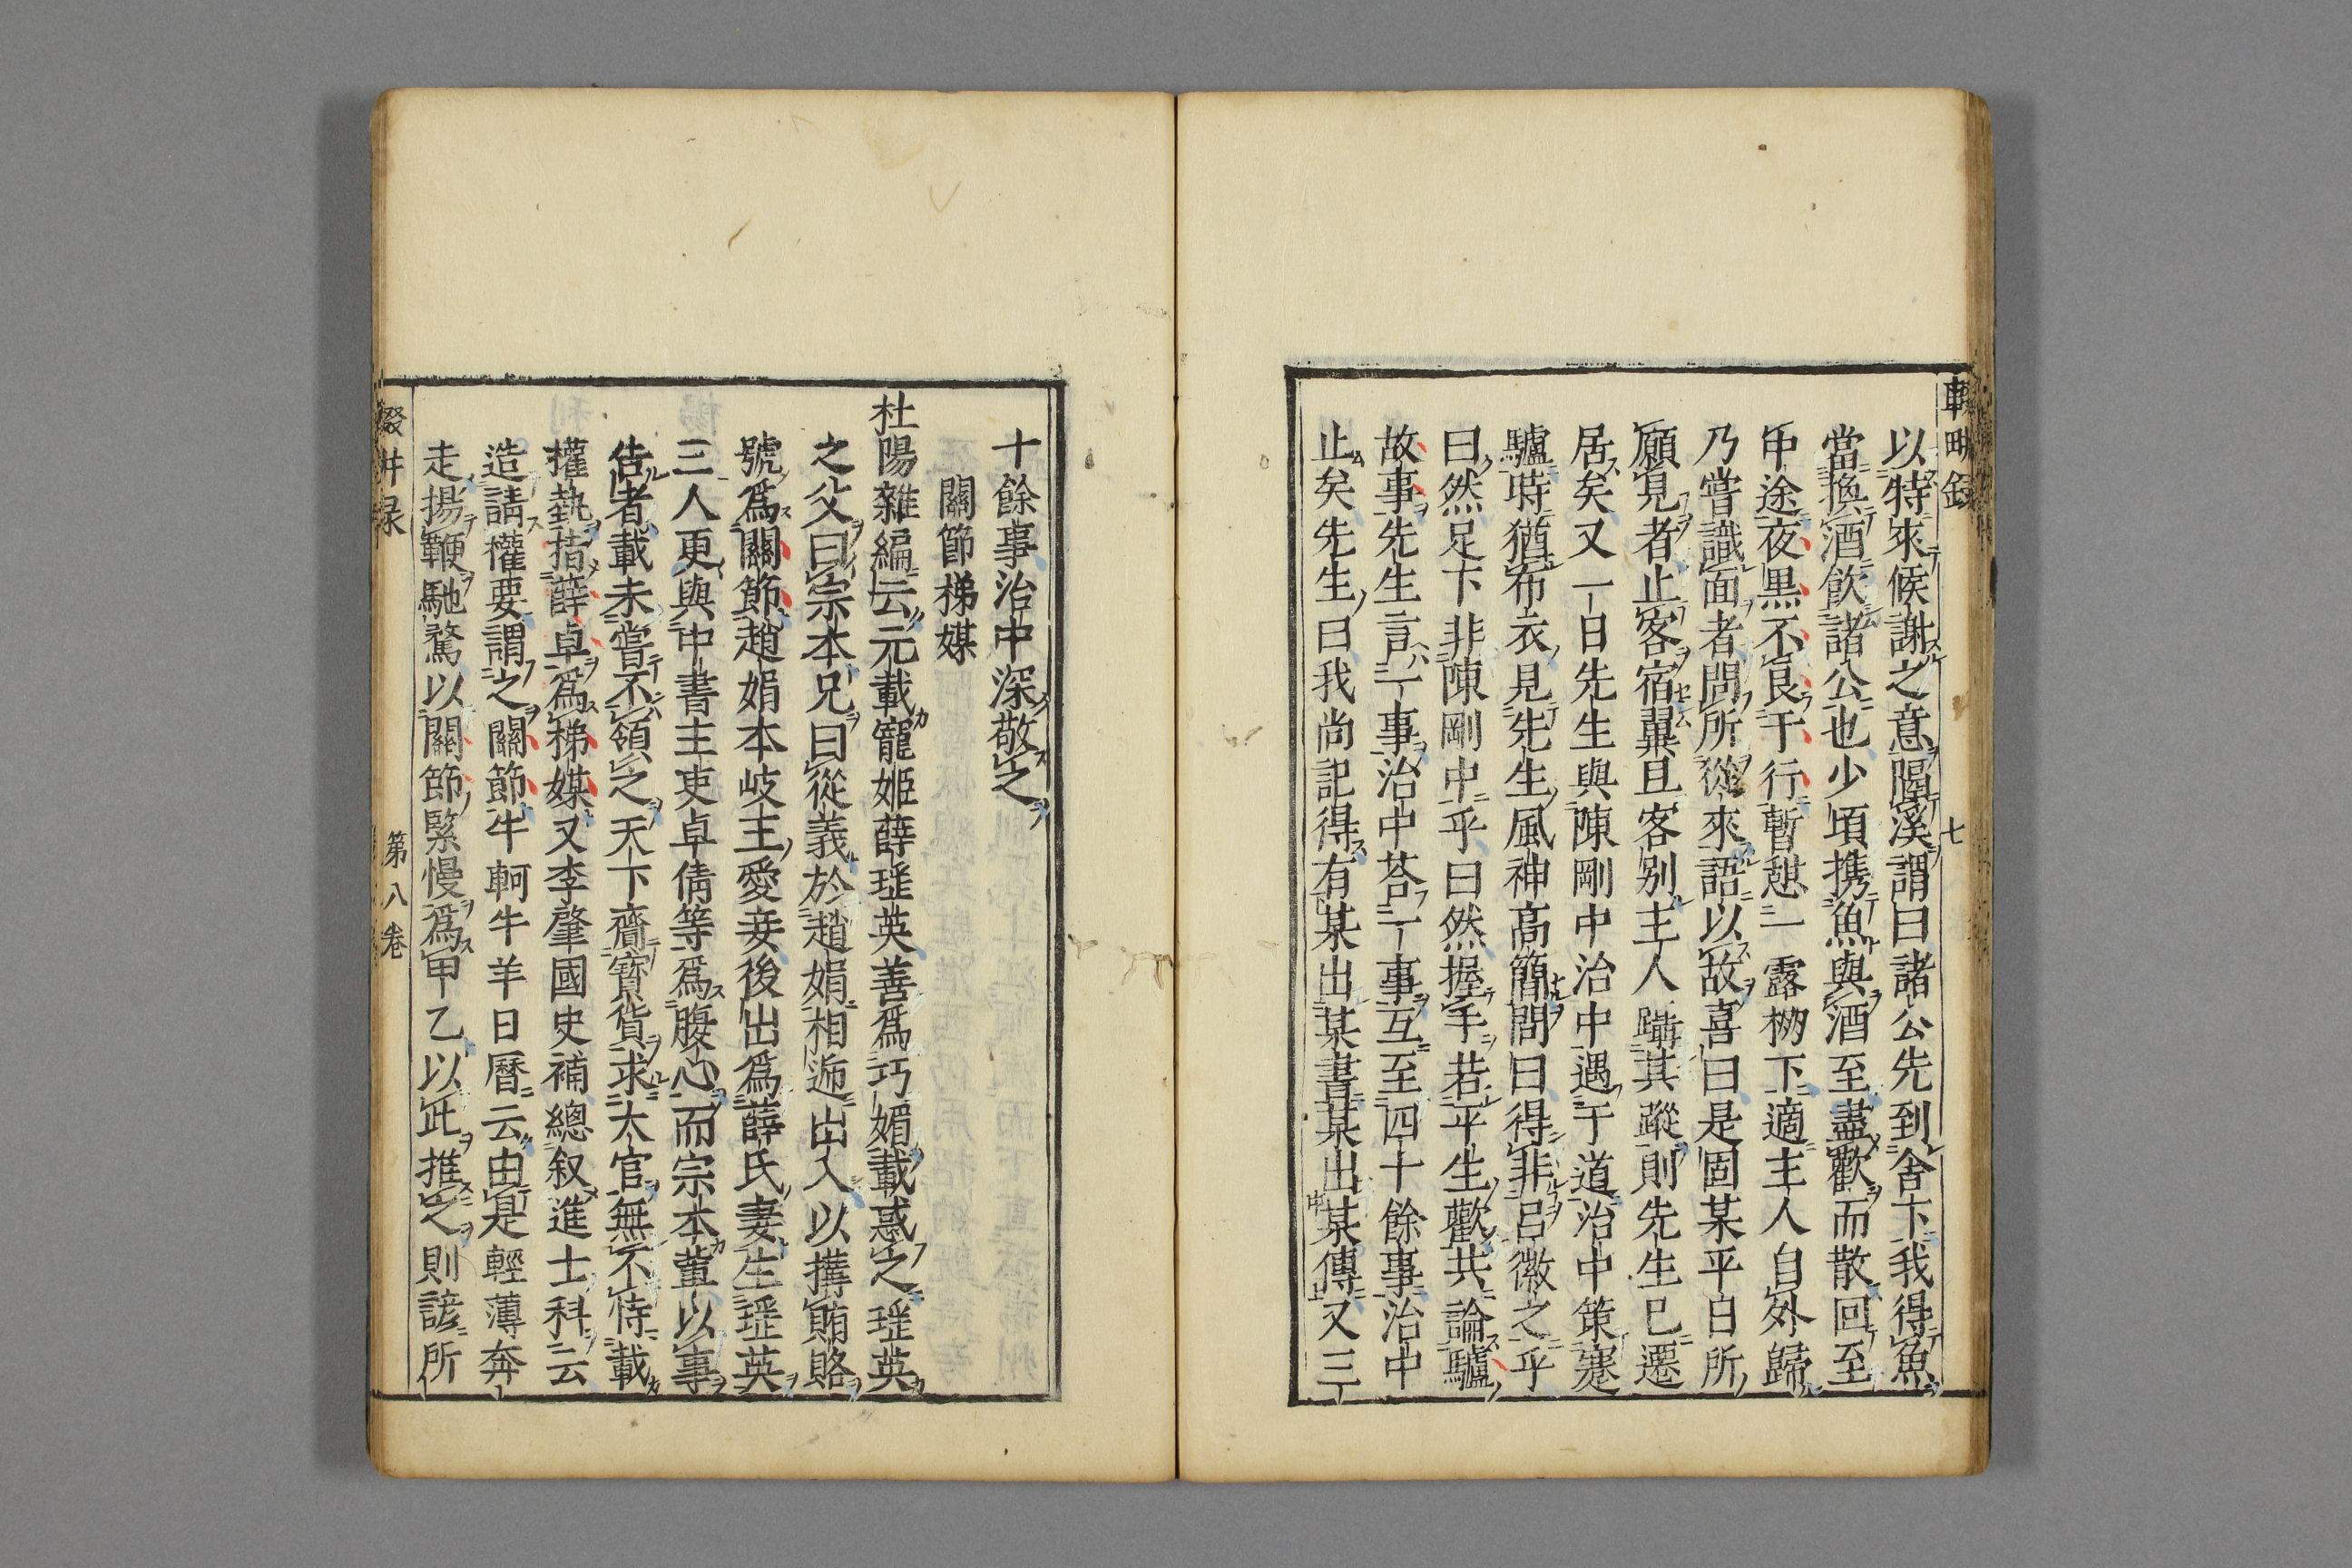 以特來候謝之意隔溪謂曰諸公先到舍下我得魚
當換酒飲諸公也少頃携魚與酒至盡歡而散回至
中途夜黒不良于行暫憇一露栁下適主人自外歸
乃嘗識面者問所從來語以故喜曰是固某平日所
願見者止客宿翼旦客别主人躡其蹤則先生已遷
居矣又一日先生與陳剛中治中遇于道治中策蹇
驢時猶布衣見先生風神高簡問曰得非呂徽之乎
曰然足下非陳剛中乎曰然握手若平生歡共論驢
故事先生言一事治中荅一事互至四十餘事治中
止矣先生曰我尚記得有某出某書某出某傳又三
十餘事治中深敬之
關節梯媒
杜陽雜編云元載寵姬薛瑶英善爲巧媚載惑之瑶英
之父曰宗本兄曰從義於趙娟相逓出入以搆賄賂
號爲關節趙娟本岐王愛妾後出爲薛氏妻生瑶英
三人更與中書主吏卓倩等爲腹心而宗本輩以事
告者載未嘗不領之天下齎寳貨求大官無不恃載
權埶指薛卓爲梯媒又李肇國史補總叙進士科云
造請權要謂之關節牛軻牛羊日曆云由是輕薄奔
走揚鞭馳騖以關節緊慢爲甲乙以此推之則諺所
七
第八卷